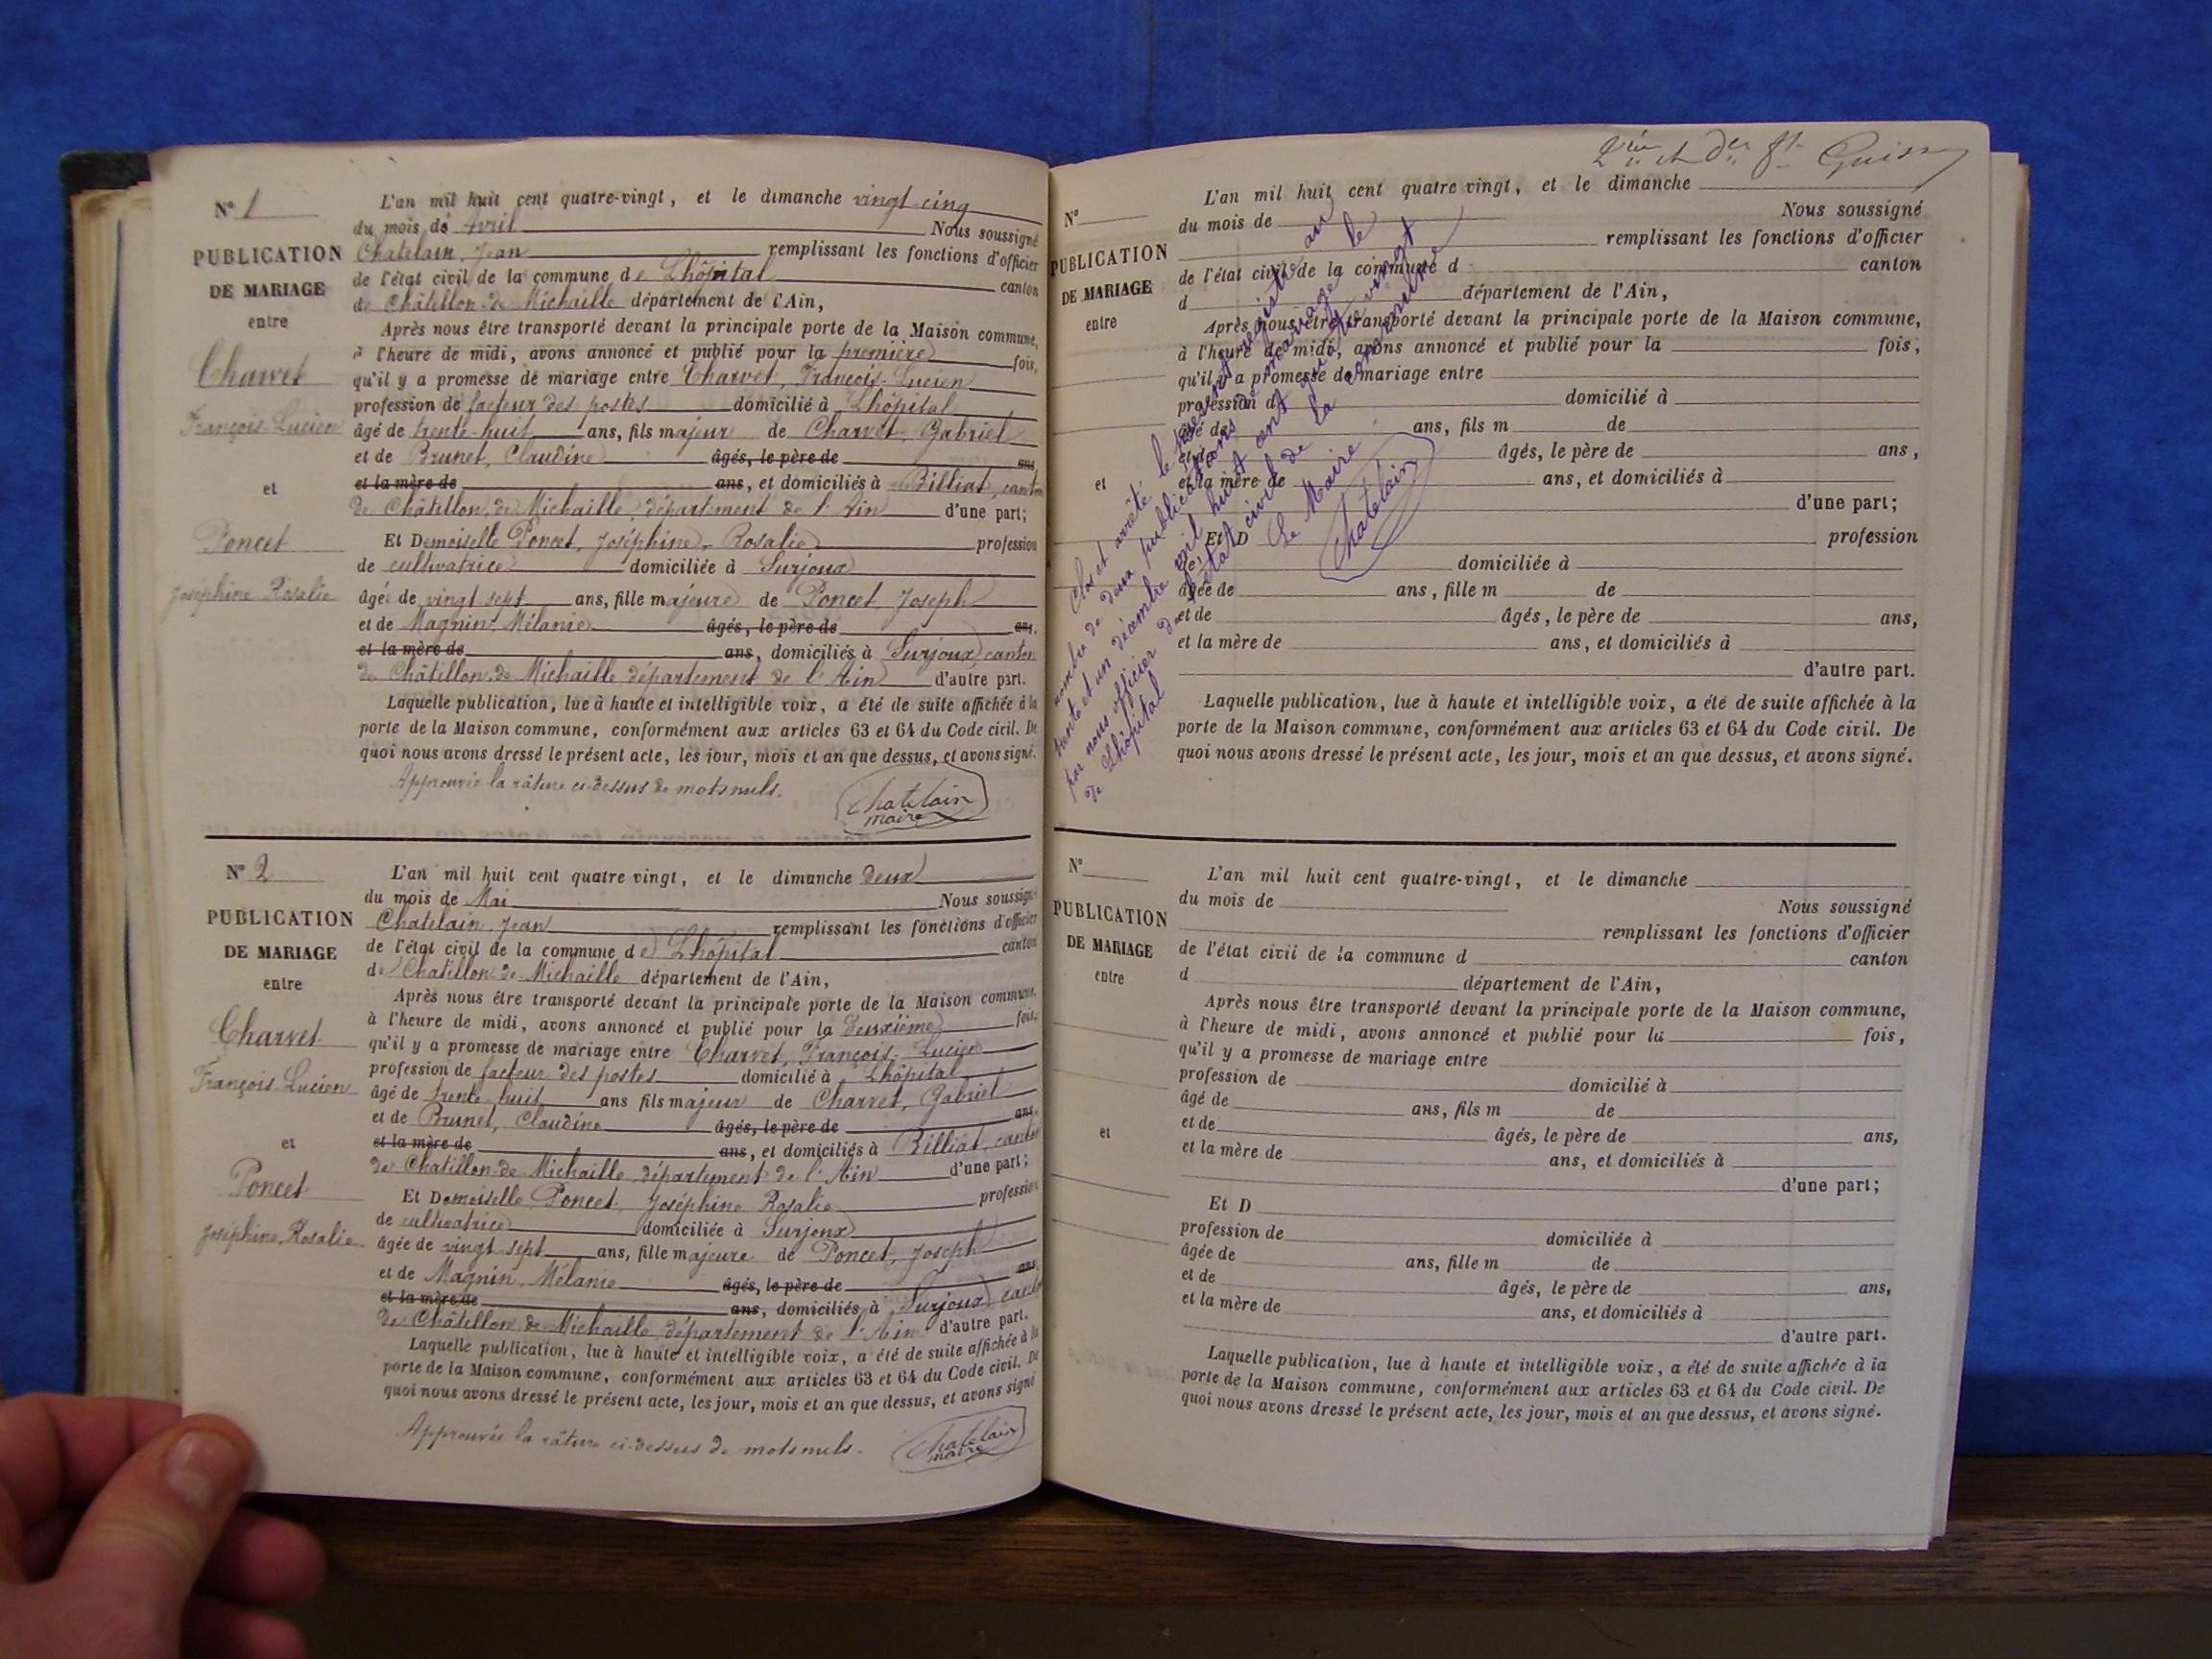 N° 1
PUBLICATION
DE MARIAGE
entre
Charvet
François-Lucien
et
Poncet
Joséphine Rosalie
L'an mil huit cent quatre-vingt, et le dimanche vingt-cinq
du mois de Avril Nous soussigné
Chatelain, Jean remplissant les fonctions d'officier
de l'état civil de la commune de Lhôpital canton
de Châtillon-de-Michaille département de l'Ain,
Après nous être transporté devant la principale porte de la Maison commune,
à l'heure de midi, avons annoncé et publié pour la première fois,
qu'il y a promesse de mariage entre Charvet, François-Lucien
profession de facteur des postes domicilié à Lhôpital
âgé de trente-huit ans, fils majeur de Charvet, Gabriel
et de Brunet, Claudine âgés, le père de ans
et la mère de ans, et domiciliés à Billiat, canton
de Châtillon-de-Michaille, département de l'Ain d'une part;
Et Demoiselle Poncet, Joséphine-Rosalie profession
de cultivatrice domiciliée à Surjoux
âgée de vingt sept ans, fille majeure de Poncet, Joseph
et de Magnin, Mélanie âgés, le père de ans,
et la mère de ans, domiciliés à Surjoux, canton
de Châtillon-de-Michaille, département de l'Ain d'autre part.
Laquelle publication, lue à haute et intelligible voix, a été de suite affichée à la
porte de la Maison commune, conformément aux articles 63 et 64 du Code civil. De
quoi nous avons dressé le présent acte, les jour, mois et an que dessus, et avons signé.
Approuvée la râture ci-dessus de mots nuls.
Chatelain
maire
N° 2
PUBLICATION
DE MARIAGE
entre
Charvet
François-Lucien
et
Poncet
Joséphine-Rosalie
L'an mil huit cent quatre vingt, et le dimanche deux
du mois de Mai Nous soussigné
Chatelain, Jean remplissant les fonctions d'officier
de l'état civil de la commune de Lhôpital canton
de Chatillon-de-Michaille département de l'Ain,
Après nous être transporté devant la principale porte de la Maison commune,
à l'heure de midi, avons annoncé et publié pour la deuxième fois,
qu'il y a promesse de mariage entre Charvet, François-Lucien
profession de facteur des postes domicilié à Lhôpital
âgé de trente-huit ans fils majeur de Charvet, Gabriel
et de Brunet, Claudine âgés, le père de ans,
et la mère de ans, et domiciliés à Billiat, canton
de Chatillon-de-Michaille, département de l'Ain d'une part;
Et Demoiselle Poncet, Joséphine-Rosalie profession
de cultivatrice domiciliée à Surjoux
âgée de vingt sept ans, fille majeure de Poncet, Joseph
et de Magnin, Mélanie âgés, le père de ans,
et la mère de ans, domiciliés à Surjoux, canton
de Châtillon-de-Michaille, département de l'Ain d'autre part.
Laquelle publication, lue à haute et intelligible voix, a été de suite affichée à la
porte de la Maison commune, conformément aux articles 63 et 64 du Code civil. De
quoi nous avons dressé le présent acte, les jour, mois et an que dessus, et avons signé
Approuvée la râture ci-dessus de mots nuls.
Chatelain
maire
N°
PUBLICATION
DE MARIAGE
entre
et
L'an mil huit cent quatre vingt, et le dimanche
du mois de Nous soussigné
remplissant les fonctions d'officier
de l'état civil de la commune d canton
d département de l'Ain,
Après nous être transporté devant la principale porte de la Maison commune,
à l'heure de midi, avons annoncé et publié pour la fois,
qu'il y a promesse de mariage entre
profession d domicilié à
âgé de ans, fils m de
et de âgés, le père de ans,
et la mère de ans, et domiciliés à
d'une part;
Et D profession
de domiciliée à
âgée de ans, fille m de
et de âgés, le père de ans,
et la mère de ans, et domiciliés à
d'autre part.
Laquelle publication, lue à haute et intelligible voix, a été de suite affichée à la
porte de la Maison commune, conformément aux articles 63 et 64 du Code civil. De
quoi nous avons dressé le présent acte, les jour, mois et an que dessus, et avons signé.
Clos et arrêté le présent registre au
nombre de deux publications de mariage le
trente et un décembre mil huit cent quatre vingt
par nous officier de l'état civil de la commune
de Lhôpital
Le Maire
Chatelain
N°
PUBLICATION
DE MARIAGE
entre
et
L'an mil huit cent quatre-vingt, et le dimanche
du mois de Nous soussigné
remplissant les fonctions d'officier
de l'état civil de la commune d canton
d département de l'Ain,
Après nous être transporté devant la principale porte de la Maison commune,
à l'heure de midi, avons annoncé et publié pour la fois,
qu'il y a promesse de mariage entre
profession de domicilié à
âgé de ans, fils m de
et de âgés, le père de ans,
et la mère de ans, et domiciliés à
d'une part;
Et D
profession de domiciliée à
âgée de ans, fille m de
et de âgés, le père de ans,
et la mère de ans, et domiciliés à
d'autre part.
Laquelle publication, lue à haute et intelligible voix, a été de suite affichée à la
porte de la Maison commune, conformément aux articles 63 et 64 du Code civil. De
quoi nous avons dressé le présent acte, les jour, mois et an que dessus, et avons signé.